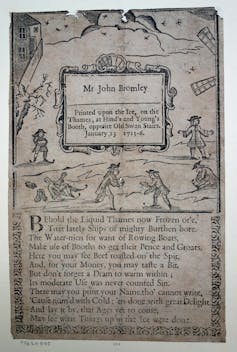 Mr John Bromley
Printed upon the Ice, on the
Thames, at Hind's and Young's
Booth, opposite Old Swan Stairs.
January 13 1715-6.
Behold the Liquid Thames now Frozen o're,
That lately Ships of mighty Burthen bore.
The Water-men for want of Rowing Boats,
Make use of Booths to get their Pence and Groats.
Here you may see Beef roasted on the Spit,
And, for your Money, you may taste a Bit.
But don't forget a Dram to warm within ;
Its moderate Use was never counted Sin.
There may you print your Name, tho' cannot write,
'Cause num'd with Cold ; 'tis done with great Delight
And lay it by, that Ages yet to come,
May see what Things upon the Ice were done.